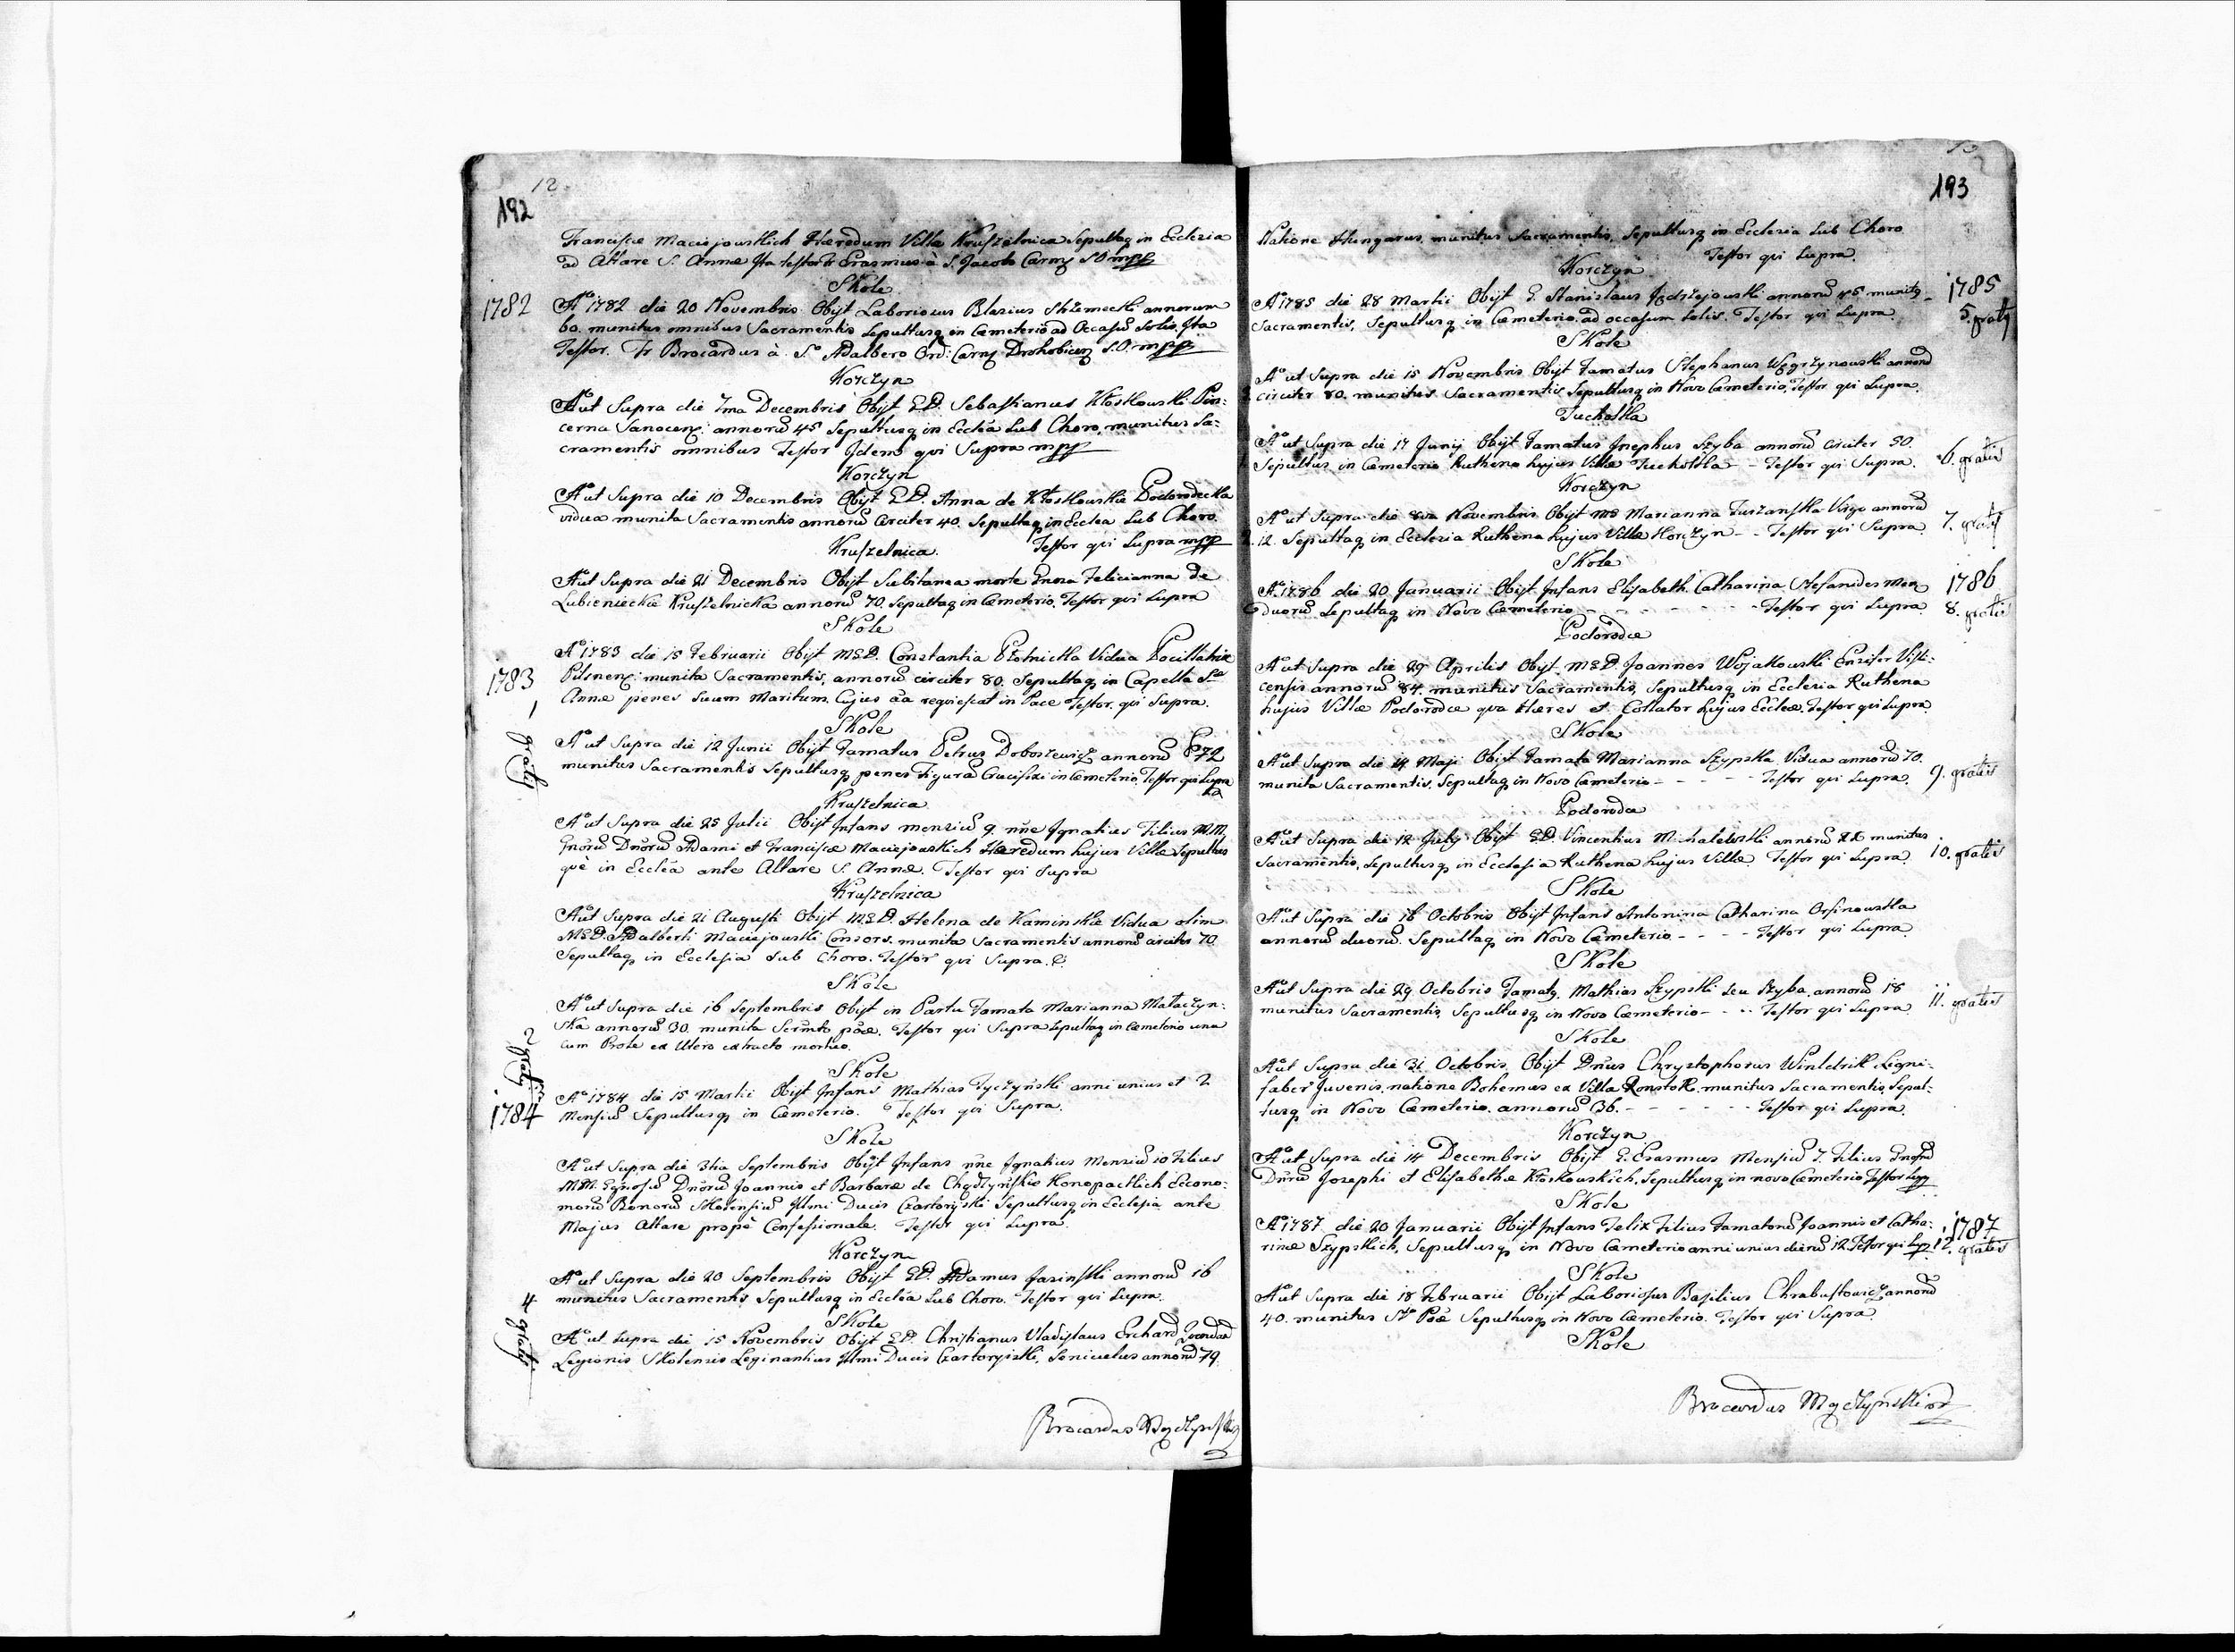 12
192
Franciscæ Maciejowskich Hæredum Villæ Kruszelnica Sepultaq in Ecclesia
ad Altare S. Annæ Ita testor Fr Erasmus à S. Jacobo Carm: S.O. mpp
Skole
1782
Aº 1782 die 20 Novembris Obijt Laboriosus Blasius annorum
60. munitus omnibus Sacramentis Sepultusq in Cæmeterio ad Occasũ Solis, Ita
Testor. Fr Brocardus à S. Adalbero Ord: Carm: Drohobicen: S.O. mpp
Korczyn
Aº ut Supra die 7ma Decembris Obijt G.D. Sebastianus Kłoskowski Pin:
cerna Sanocen: annorũ 45 Sepultusq in Eccl̃ea Sub Choro, munitus Sa:
cramentis omnibus Testor Idem qui Supra mpp
Korczyn
Aº ut Supra die 10 Decembris Obijt G.D. Anna de Kłoskowskie Podorodecka
vidua munita Sacramentis annorũ Circiter 40. Sepultaq in Ecclea Sub Choro.
Kruszelnica. Testor qui Supra mpp
Aº ut Supra die 21 Decembris Obijt Subitanea morte Felicianna de
Lubienieckie Kruszelnicka annorũ 70. Sepultaq in Cæmeterio. Testor qui Supra
Skole
1783
Aº 1783 die 15 Februarii Obijt M.G.D. Constantia Płotnicka Vidua Pocillatrix
Pilsnen: munita Sacramentis, annorũ circiter 80. Sepultaq in Capella S.
Annæ penes Suum Maritum. Cujus ãa requiescat in Pace Testor. qui Supra.
1 gratis
Skole
Aº ut Supra die 12 Junii Obijt Famatus Petrus Doboszewicz annorũ 72
munitus Sacramentis Sepultusq penes Figurã Crucifixi in Cæmeterio. Testor qui Supra
Kruszelnica
Aº ut Supra die 25 Julii Obijt Infans mensiũ 9. ñne Ignatius Filius M.M.
Gñorũ Dñorũ Adami et Franciscæ Maciejowskich Hæredum hujus Villæ Sepultus
què in Eccl̃ea ante Altare S. Annæ. Testor qui Supra
Kruszelnica
Aº ut Supra die 21 Augusti Obijt M.G.D. Helena de Kaminskie Vidua olim
M.G.D. Adalberti Maciejowski Consors. munita Sacramentis annorũ circiter 70.
Sepultaq in Ecclesia Sub Choro. Testor qui Supra.
Skole
Aº ut Supra die 16 Septembris Obijt in Partu Famata Marianna Mataczyn:
ska annorũ 30. munita Testor qui Supra Sepultaq in Cæmeterio una
cum Prole ex Utero extracto mortuo.
2 gratis
Skole
1784
Aº 1784 die 15 Martii Obijt Infans Mathias Tyczyński anni unius et 2
Mensiũ Sepultusq in Cæmeterio. Testor qui Supra.
Skole
Aº ut Supra die 3tia Septembris Obijt Infans ñne Ignatius Mensiũ 10 Filius
M.M. Dñorũ Joannis et Barbaræ de Konopackich Econo:
morũ Bonorũ Skolensiũ Illmi Ducis Czartoryiski Sepultusq in Ecclesia ante
Majus Altare propè Confessionale. Testor qui Supra.
Korczyn
Aº ut Supra die 20 Septembris Obijt G.D. Adamus Jasinski annorũ 16
munitus Sacramentis Sepultusq in Eccl̃ea Sub Choro. Testor qui Supra.
4 gratis
Skole
Aº ut Supra die 15 Novembris Obijt G.D. Christianus Vladislaus Erchard
Legionis Skolensis Illmi Ducis Czartoryiski, annorũ 79.
Brocardus
193
Natione Hungarus, munitus Sacramentis, Sepultusq in Ecclesia Sub Choro
Testor qui Supra.
Korczyn
1785
Aº 1785 die 28 Martii Obijt G. Stanislaus Jędrzejowski annorũ 45 munitq
Sacramentis, Sepultusq in Cæmeterio. ad occasum Solis. Testor qui Supra.
5. gratis
Skole
Aº ut Supra die 15 Novembris Obijt Famatus Stephanus Węgrzynowski annorũ
circiter 80. munitus Sacramentis Sepultusq in Novo Cæmeterio, Testor. qui Supra.
Tucholka
Aº ut Supra die 17 Junij Obijt Famatus Josephus Szyba annorũ circiter 50.
Sepultus in Cæmeterio Rutheno hujus Villæ Tucholka - Testor qui Supra.
6. gratis
Korczyn
Aº ut Supra die 8va Novembris Obijt Marianna Turzanska Virgo annorũ
12. Sepultaq in Ecclesia Ruthena hujus Villæ Korczyn - - Testor qui Supra
7. gratis
Skole
1786
Aº 1786 die 20 Januarii Obijt Infans Elisabeth Catharina Stefanides Men
duorũ Sepultaq in Novo Cæmeterio - - - - - - Testor qui Supra.
8. gratis
Podorodce
Aº ut Supra die 29 Aprilis Obijt M.G.D. Joannes Wojakowski Ensifer
annorũ 84. munitus Sacramentis, Sepultusq in Ecclesia Ruthena
hujus Villæ Podorodce qua Hæres et Collator hujus Ecclea. Testor qui Supra
Skole
Aº ut Supra die 14 Maji Obijt Famata Marianna Szypska Vidua annorũ 70.
munita Sacramentis, Sepultaq in Novo Cæmeterio - - - - Testor qui Supra.
9. gratis
Podorodce
Aº ut Supra die 12 July Obijt G.D. Vincentius annorũ munitus
Sacramentis, Sepultusq in Ecclesia Ruthena hujus Villæ Testor qui Supra.
10. gratis
Skole
Aº ut Supra die 16 Octobris Obijt Infans Antonina Catharina Orsinowska
annorũ duorũ. Sepultaq in Novo Cæmeterio - - - - Testor qui Supra.
Skole
Aº ut Supra die 29 Octobris Famatq Mathias Szypski Seu Szyba, annorũ 18
munitus Sacramentis Sepultusq in Novo Cæmeterio - - - Testor qui Supra
11. gratis
Skole
Aº ut Supra die 31 Octobris Obijt Dñus Chrystophorus Winddrik Ligni:
faber Juvenis, natione Bohemus ex Villa munitus Sacramentis, Sepul:
tusq in Novo Cæmeterio. annorũ 36. - - - - - - Testor qui Supra.
Korczyn
Aº ut Supra die 14 Decembris Obijt G. Erasmus Mensiũ 7. Filius
Dñrũ Josephi et Elisabethæ Kłoskowskich, Sepultusq in novo Cæmeterio Testor
Skole
1787
Aº 1787 die 20 Januarii Obijt Infans Felix Filius Famatorũ Joannis et Catha:
rinæ Szypskich, Sepultusq in Novo Cæmeterio anni unius dierũ 12. Testor qui Sup
12. gratis
Skole
Aº ut Supra die 18 Februarii Obijt Laboriosus Basilius Chrabustowicz annorũ
40. munitus Sepultusq in Novo Cæmeterio. Testor qui Supra
Skole
Brocardus